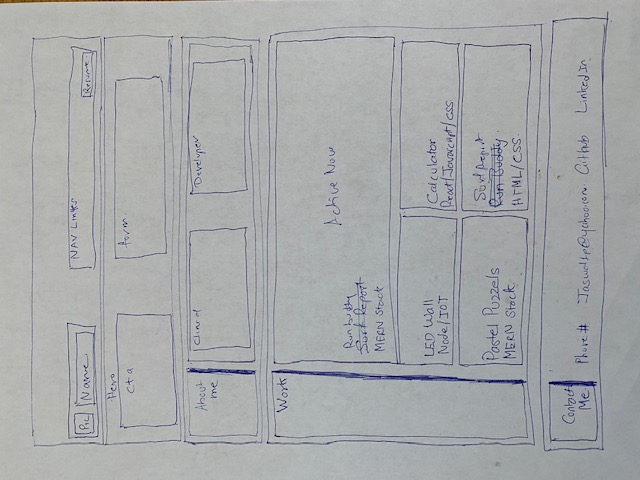 Pic
Name
NAV Links
Resume
Hero
cta
form
About
me
Developer
Work
Active Now
Run buddy
Surf Report
MERN Stack
LED Wall
Node/IOT
Calculator
React/Javascript/CSS
Pastel Puzzels
MERN Stack
Surf Report
Run Buddy
HTML/CSS
Contact
Me
Phone #
GitHub
LinkedIn